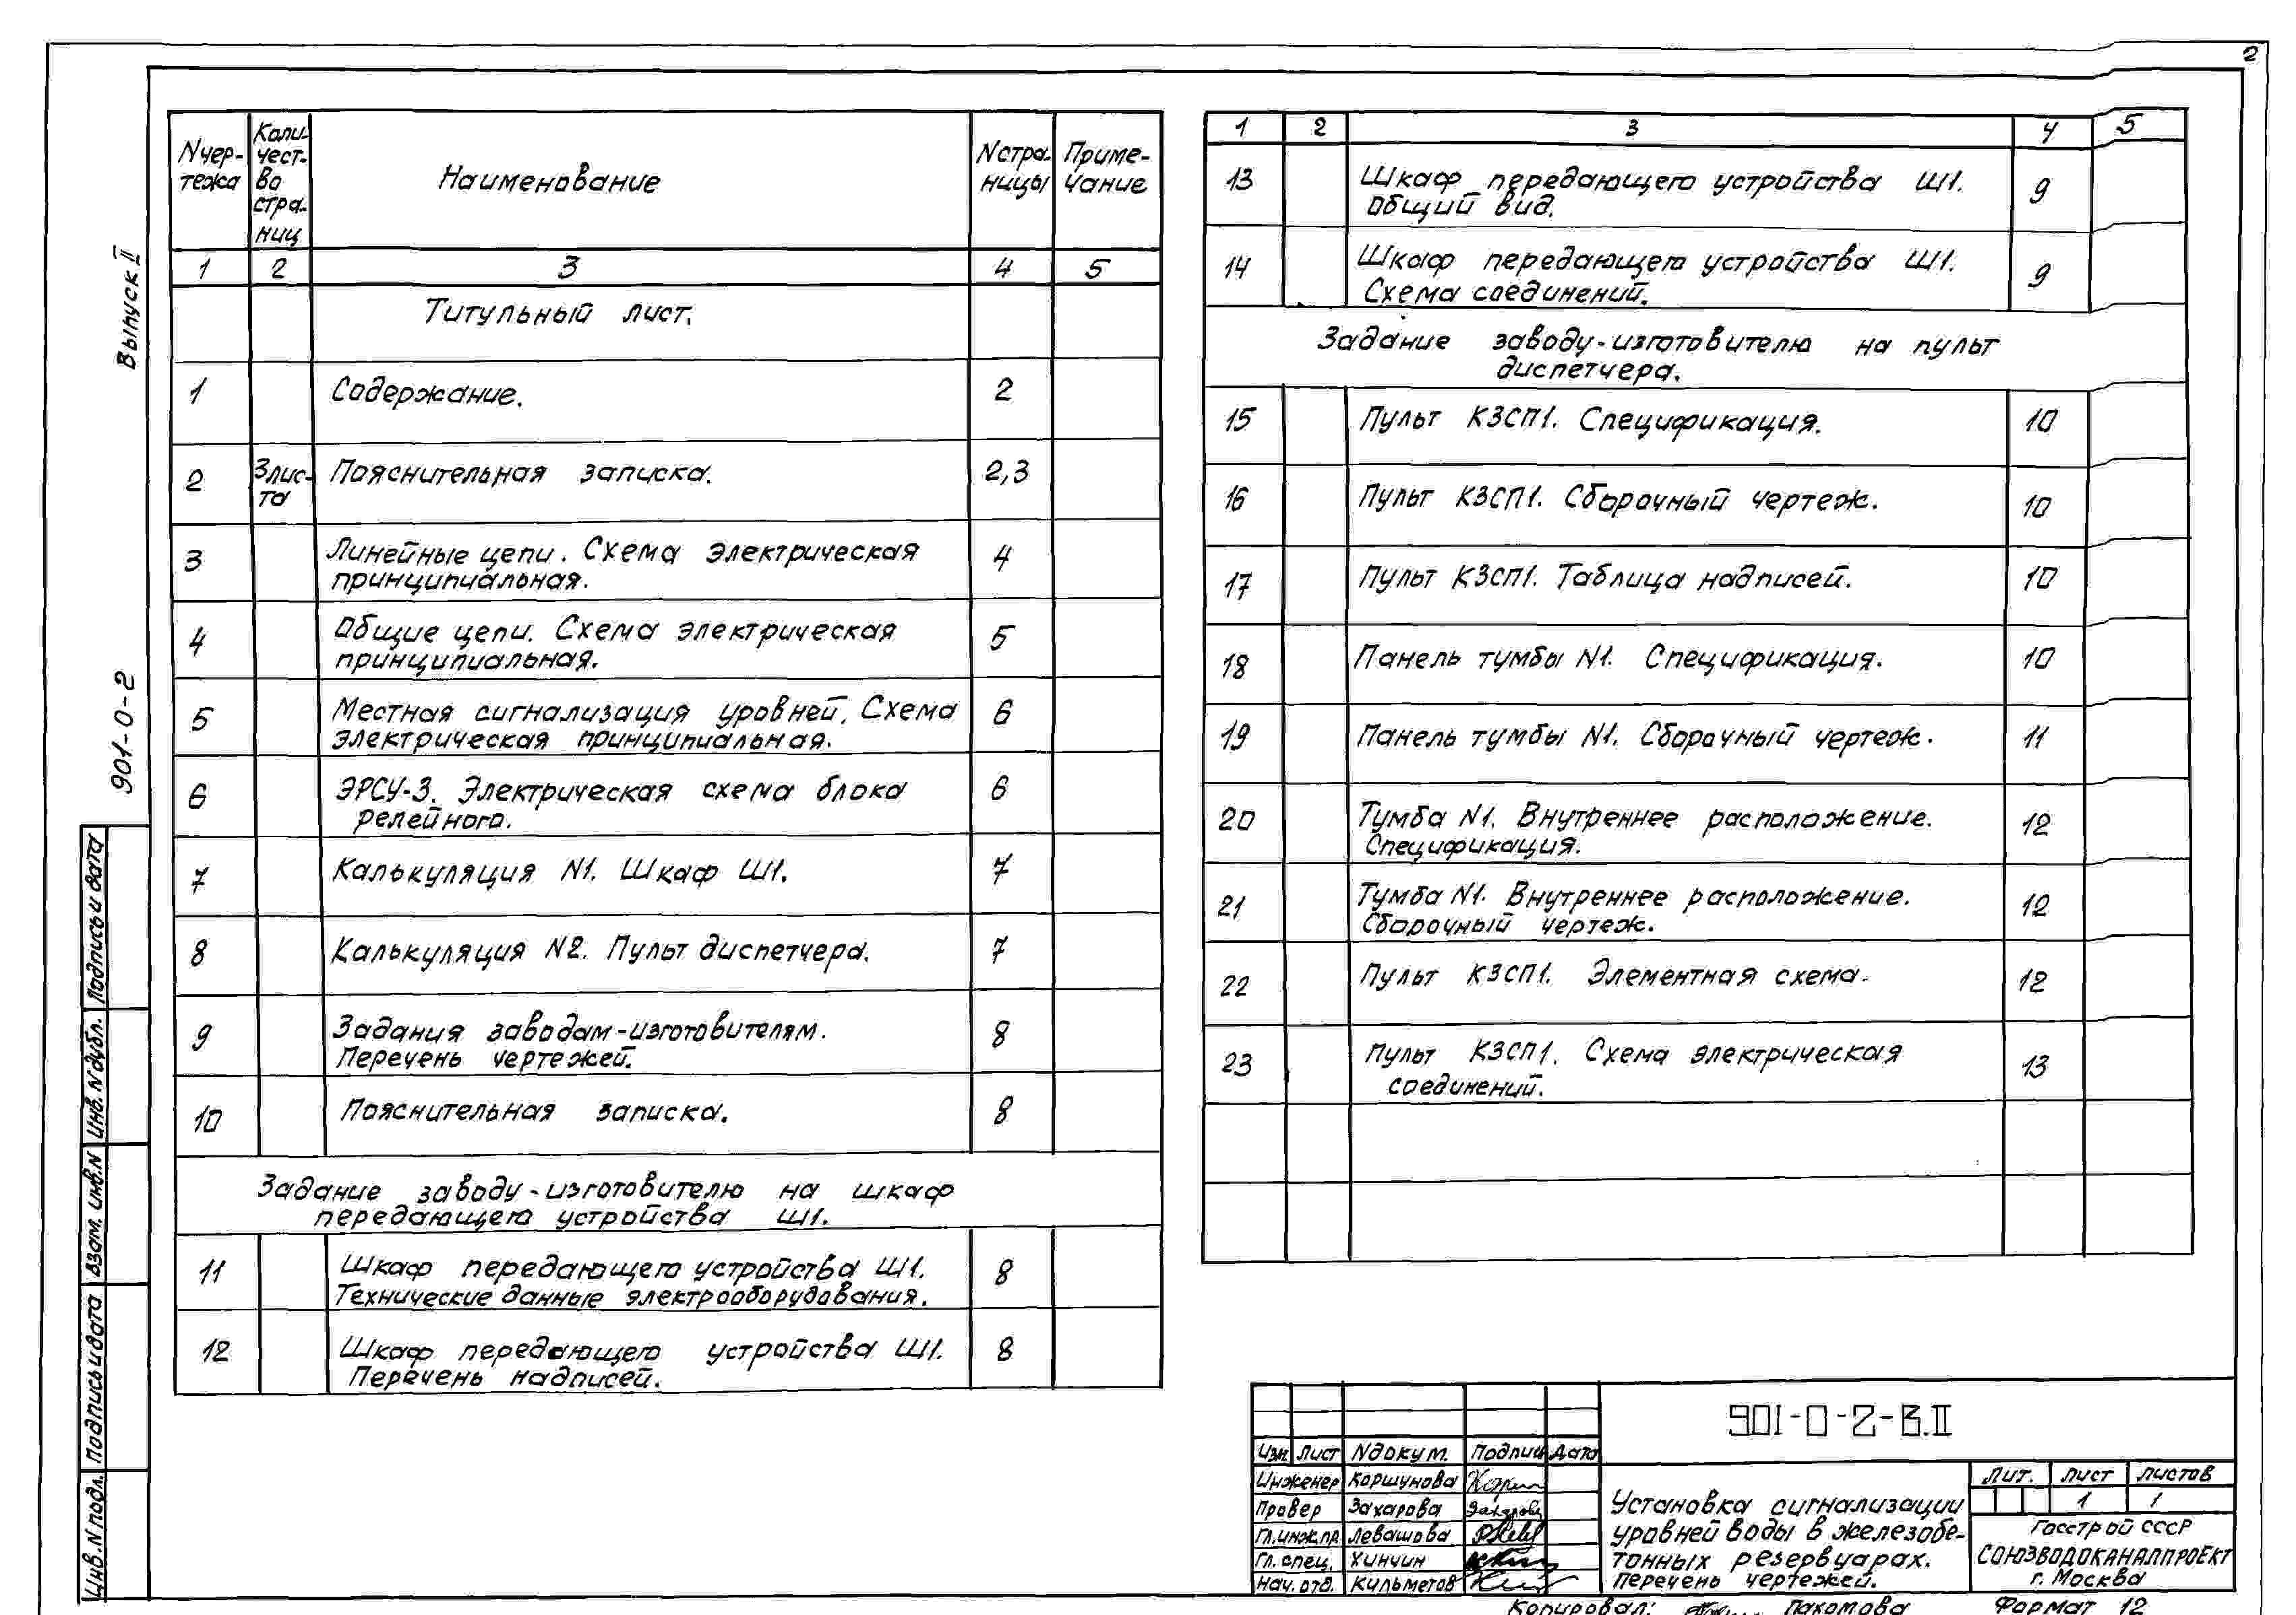 2
Выпуск II
901-0-2
Nчер-
тежа
Коли-
чест-
во
стра-
ниц
Наименование
Nстра-
ницы
Приме-
чание
1 2 3 4 5
Титульный лист.
1 Содержание. 2
2 3лис-
та Пояснительная записка. 2,3
3 Линейные цепи. Схема электрическая 4
принципиальная.
4 Общие цепи. Схема электрическая 5
принципиальная.
5 Местная сигнализация уровней. Схема 6
электрическая принципиальная.
6 ЭРСУ-3. Электрическая схема блока 6
релейного.
7 Калькуляция N1. Шкаф Ш1. 7
8 Калькуляция N2. Пульт диспетчера. 7
9 Задания заводам-изготовителям. 8
Перечень чертежей.
10 Пояснительная записка. 8
Задание заводу-изготовителю на шкаф
передающего устройства Ш1.
11 Шкаф передающего устройства Ш1. 8
Технические данные электрооборудования.
12 Шкаф передающего устройства Ш1. 8
Перечень надписей.
1 2 3 4 5
13 Шкаф передающего устройства Ш1. 9
Общий вид.
14 Шкаф передающего устройства Ш1. 9
Схема соединений.
Задание заводу-изготовителю на пульт
диспетчера.
15 Пульт К3СП1. Спецификация. 10
16 Пульт К3СП1. Сборочный чертеж. 10
17 Пульт К3СП1. Таблица надписей. 10
18 Панель тумбы N1. Спецификация. 10
19 Панель тумбы N1. Сборочный чертеж. 11
20 Тумба N1. Внутреннее расположение. 12
Спецификация.
21 Тумба N1. Внутреннее расположение. 12
Сборочный чертеж.
22 Пульт К3СП1. Элементная схема. 12
23 Пульт К3СП1. Схема электрическая 13
соединений.
Инв.Nподл. Подпись и дата Взам. инв.N Инв.Nдубл. Подпись и дата
901-0-2-В.II
Изм. Лист Nдокум. Подпись Дата
Инженер Коршунова
Провер Захарова
Гл.инж.пр. Левашова
Гл.спец. Хинчин
Нач.отд. Кильметов
Установка сигнализации
уровней воды в железобе-
тонных резервуарах.
Перечень чертежей.
Лит. Лист Листов
1 1
Госстрой СССР
СОЮЗВОДОКАНАЛПРОЕКТ
г. Москва
Копировал: Пахомова Формат 12